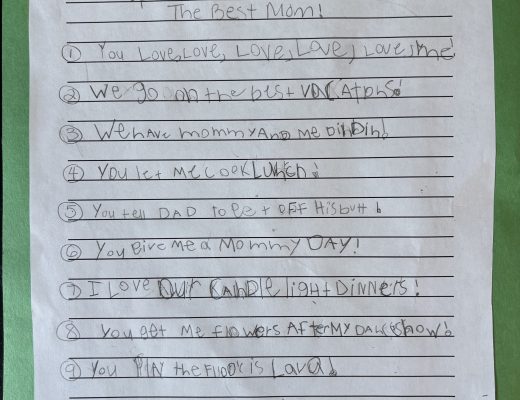 The Best Mom!
① You Love, Love, Love, Love, Love, me
② We go on the best VACAtions!
③ We HAVE mommy AND me DinDin!
④ You let me cook LUNCH!
⑤ You tell DAD to get OFF His butt!
⑥ You Give me a Mommy DAY!
⑦ I Love Our CANDle light DINNERS!
⑧ You get Me floWers AfteR MY DANCE show!
⑨ You the Floor is Lava!